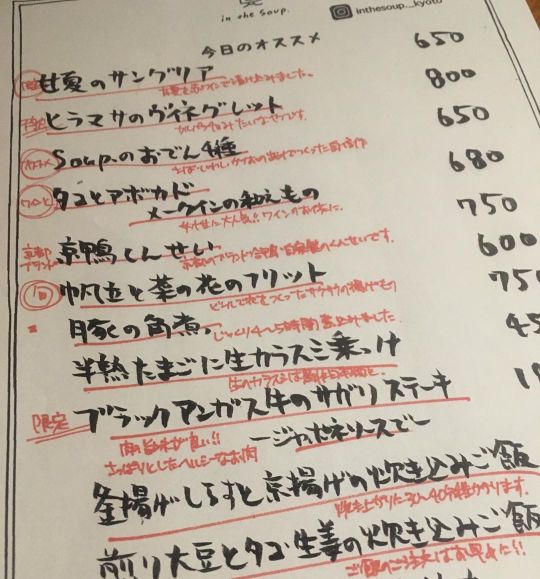 in the soup.
inthesoup._kyoto
今日のオススメ
甘夏のサングリア 650
ヒラマサのヴィネグレット 800
カルパッチョみたいなやつです。
オススメ soup.のおでん4種 650
タコとアボカド
メークインの和えもの 680
女性に大人気!!ワインのお供に。
京都ブランド 京鴨くんせい 750
帆立と菜の花のフリット 600
豚の角煮。
じっくり4~5時間煮込みました。
半熟たまごに生カラスミ乗っけ
限定 ブラックアンガス牛のサガリステーキ
ージャポネソースでー
肉の旨味が良い!!
さっぱりとしたヘルシーなお肉
釜揚げしらすと京揚げの炊き込みご飯
炊き上がりに30~40分程かかります。
煎り大豆とタコ生姜の炊き込みご飯
ご飯のご注文はお早めに!!